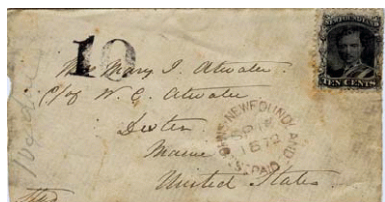 10
NEWFOUNDLAND
TEN CENTS
Mrs Mary J. Atwater
c/o W. G. Atwater
Dexter
Maine
United States
ST. JOHNS NEWFOUNDLAND
1872
PAID